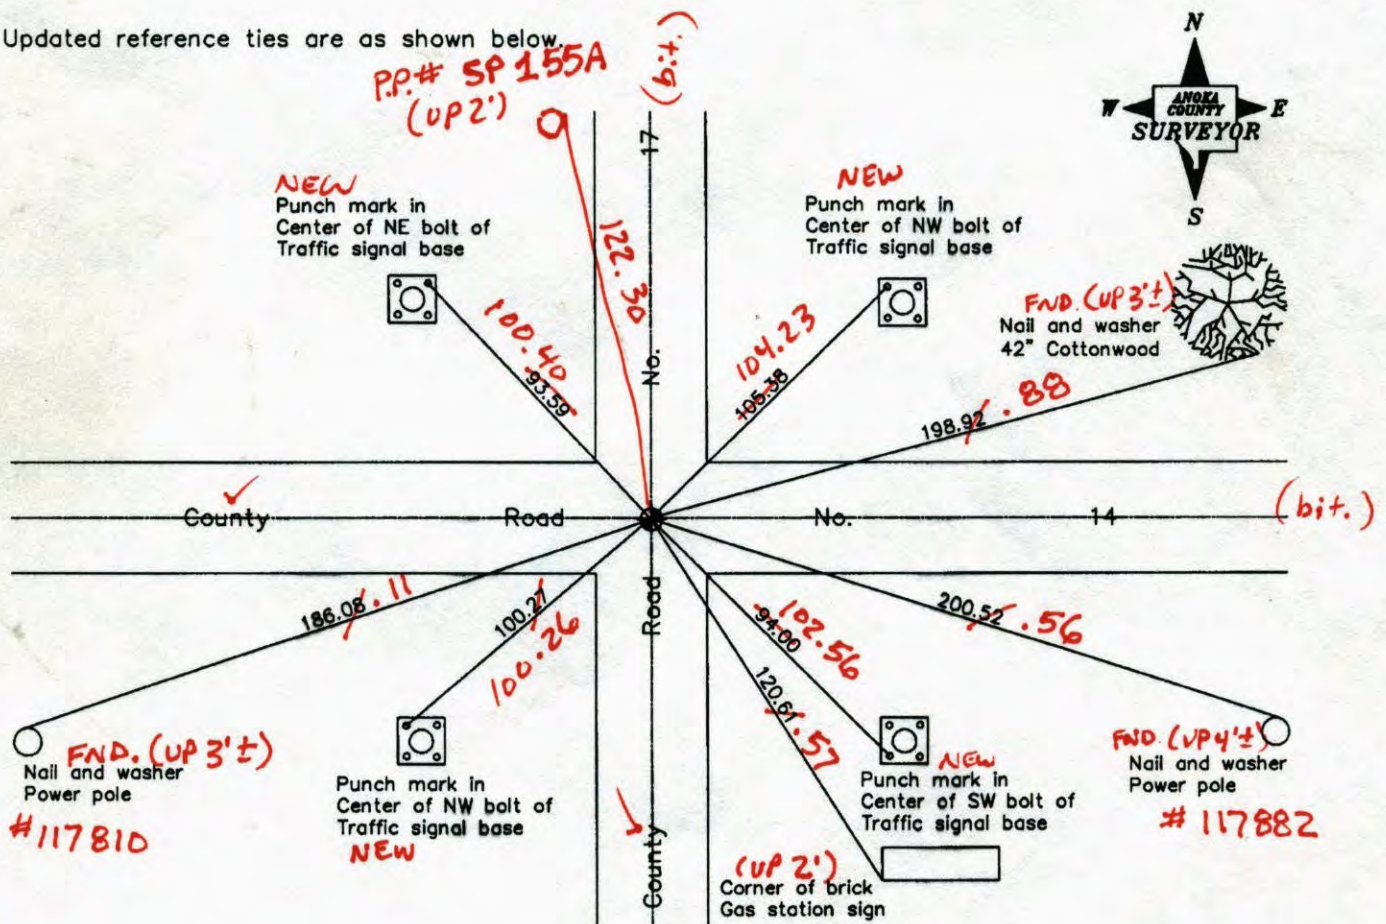 Updated reference ties are as shown below.
P.P.# SP 155A
(UP 2')
(bit.)
N
W
ANOKA
COUNTY
SURVEYOR
E
S
NEW
Punch mark in
Center of NE bolt of
Traffic signal base
NEW
Punch mark in
Center of NW bolt of
Traffic signal base
FND. (UP 3'±)
Nail and washer
42" Cottonwood
122.30
100.40
93.59
104.23
105.38
198.92 .88
County Road No. 17
County Road No. 14
(bit.)
186.08 .11
100.27
100.26
94.00
102.56
120.61 .57
200.52 .56
FND. (UP 3'±)
Nail and washer
Power pole
#117810
Punch mark in
Center of NW bolt of
Traffic signal base
NEW
NEW
Punch mark in
Center of SW bolt of
Traffic signal base
FND. (UP 4'±)
Nail and washer
Power pole
# 117882
(UP 2')
Corner of brick
Gas station sign